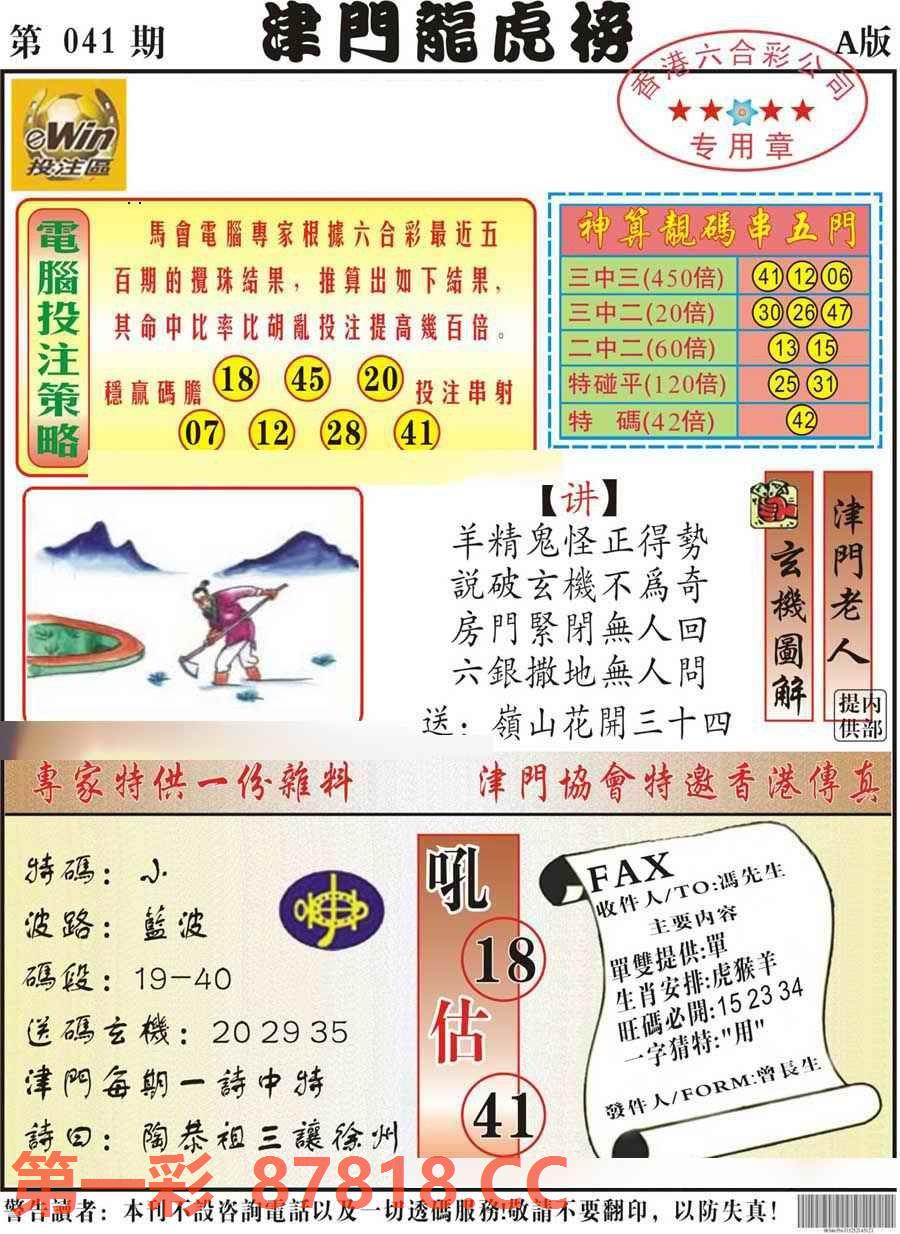 第 041 期
津門龍虎榜
A版
香港六合彩公司
专用章
eWin
投注區
電腦投注策略
馬會電腦專家根據六合彩最近五
百期的攪珠結果，推算出如下結果，
其命中比率比胡亂投注提高幾百倍。
穩贏碼膽 18 45 20 投注串射
07 12 28 41
神算靚碼串五門
三中三(450倍) 41 12 06
三中二(20倍) 30 26 47
二中二(60倍) 13 15
特碰平(120倍) 25 31
特 碼(42倍) 42
【讲】
羊精鬼怪正得勢
説破玄機不爲奇
房門緊閉無人回
六銀撒地無人問
送：嶺山花開三十四
玄機圖解
津門老人
內部提供
專家特供一份雜料
津門協會特邀香港傳真
特碼：小
波路：藍波
碼段：19-40
送碼玄機：20 29 35
津門每期一詩中特
詩曰：陶恭祖三讓徐州
吼
18
估
41
FAX
收件人/TO:馮先生
主要内容
單雙提供:單
生肖安排:虎猴羊
旺碼必開:15 23 34
一字猜特:"用"
發件人/FORM:曾長生
第一彩 87818.CC
警告讀者：本刊不設咨詢電話以及一切透碼服務!敬請不要翻印，以防失真!